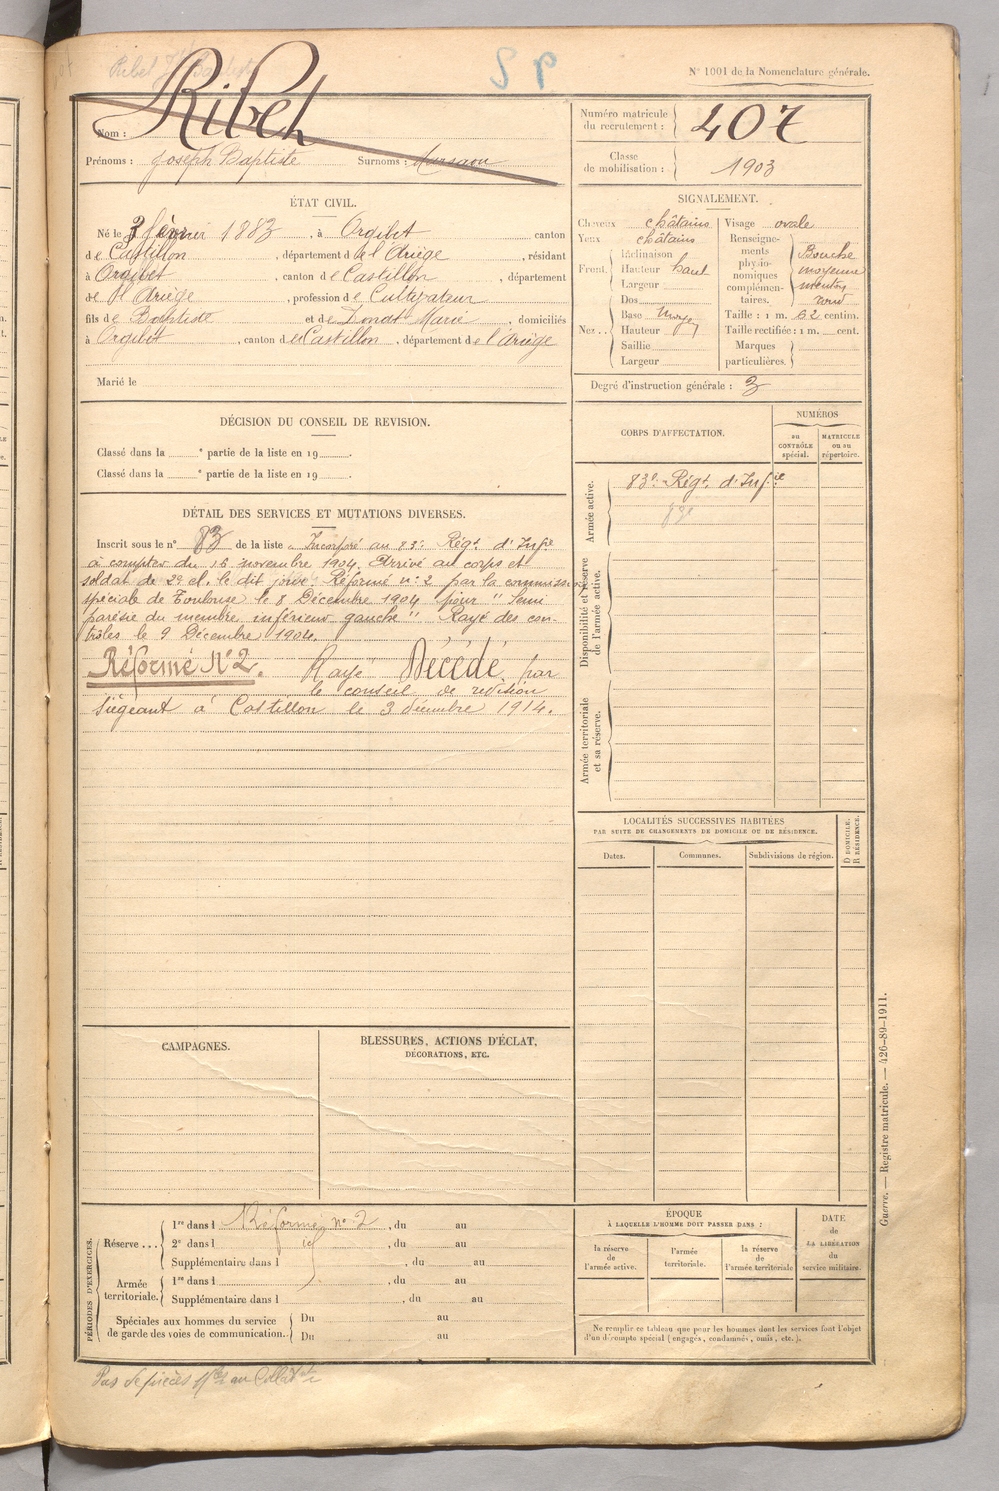 S P
N° 1001 de la Nomenclature générale.
Nom : Ribet
Prénoms : Joseph Baptiste Surnoms :
Numéro matricule du recrutement : 407
Classe de mobilisation : 1903
ÉTAT CIVIL.
Né le 3 février 1883, à Orgibet canton
de Castillon, département de l'Ariège, résidant
à Orgibet, canton de Castillon, département
de l'Ariège, profession de Cultivateur
fils de Baptiste et de Marie, domiciliés
à Orgibet, canton de Castillon, département de l'Ariège
Marié le
SIGNALEMENT.
Cheveux châtains
Yeux châtains
Front. Inclinaison
Hauteur haut
Largeur
Dos
Nez... Base moyen
Hauteur
Saillie
Largeur
Visage ovale
Renseignements physionomiques complémentaires. Bouche moyenne menton rond
Taille : 1 m. 62 centim.
Taille rectifiée : 1 m. cent.
Marques particulières.
Degré d'instruction générale : 3
DÉCISION DU CONSEIL DE REVISION.
Classé dans la e partie de la liste en 19 .
Classé dans la e partie de la liste en 19 .
DÉTAIL DES SERVICES ET MUTATIONS DIVERSES.
Inscrit sous le n° 83 de la liste Incorporé au 83e Régt. d'Infie
à compter du 16 novembre 1904. Arrivé au corps et
soldat de 2e cl. le dit jour. Réformé n° 2 par la commission
spéciale de Toulouse le 8 Décembre 1904 pour "Semi
parésie du membre inférieur gauche" Rayé des con-
trôles le 9 Décembre 1904.
Réformé N° 2. Rayé Décédé par
le conseil de révision
siégeant à Castillon le 3 décembre 1914.
CORPS D'AFFECTATION.
NUMÉROS
au CONTRÔLE spécial.
MATRICULE ou au répertoire.
Armée active.
83e Régt. d'Infie
83e
Disponibilité et réserve de l'armée active.
Armée territoriale et sa réserve.
LOCALITÉS SUCCESSIVES HABITÉES
PAR SUITE DE CHANGEMENTS DE DOMICILE OU DE RÉSIDENCE.
Dates.
Communes.
Subdivisions de région.
D DOMICILE.
R RÉSIDENCE.
CAMPAGNES.
BLESSURES, ACTIONS D'ÉCLAT,
DÉCORATIONS, ETC.
PÉRIODES D'EXERCICES.
Réserve...
1re dans l Réformé n° 2, du au
2e dans l id, du au
Supplémentaire dans l , du au
Armée territoriale.
1re dans l , du au
Supplémentaire dans l , du au
Spéciales aux hommes du service de garde des voies de communication.
Du au
Du au
ÉPOQUE
À LAQUELLE L'HOMME DOIT PASSER DANS :
la réserve de l'armée active.
l'armée territoriale.
la réserve de l'armée territoriale
DATE de LA LIBÉRATION du service militaire.
Ne remplir ce tableau que pour les hommes dont les services font l'objet
d'un décompte spécial (engagés, condamnés, omis, etc.).
Guerre. — Registre matricule. — 426-89-1911.
Pas de pièces